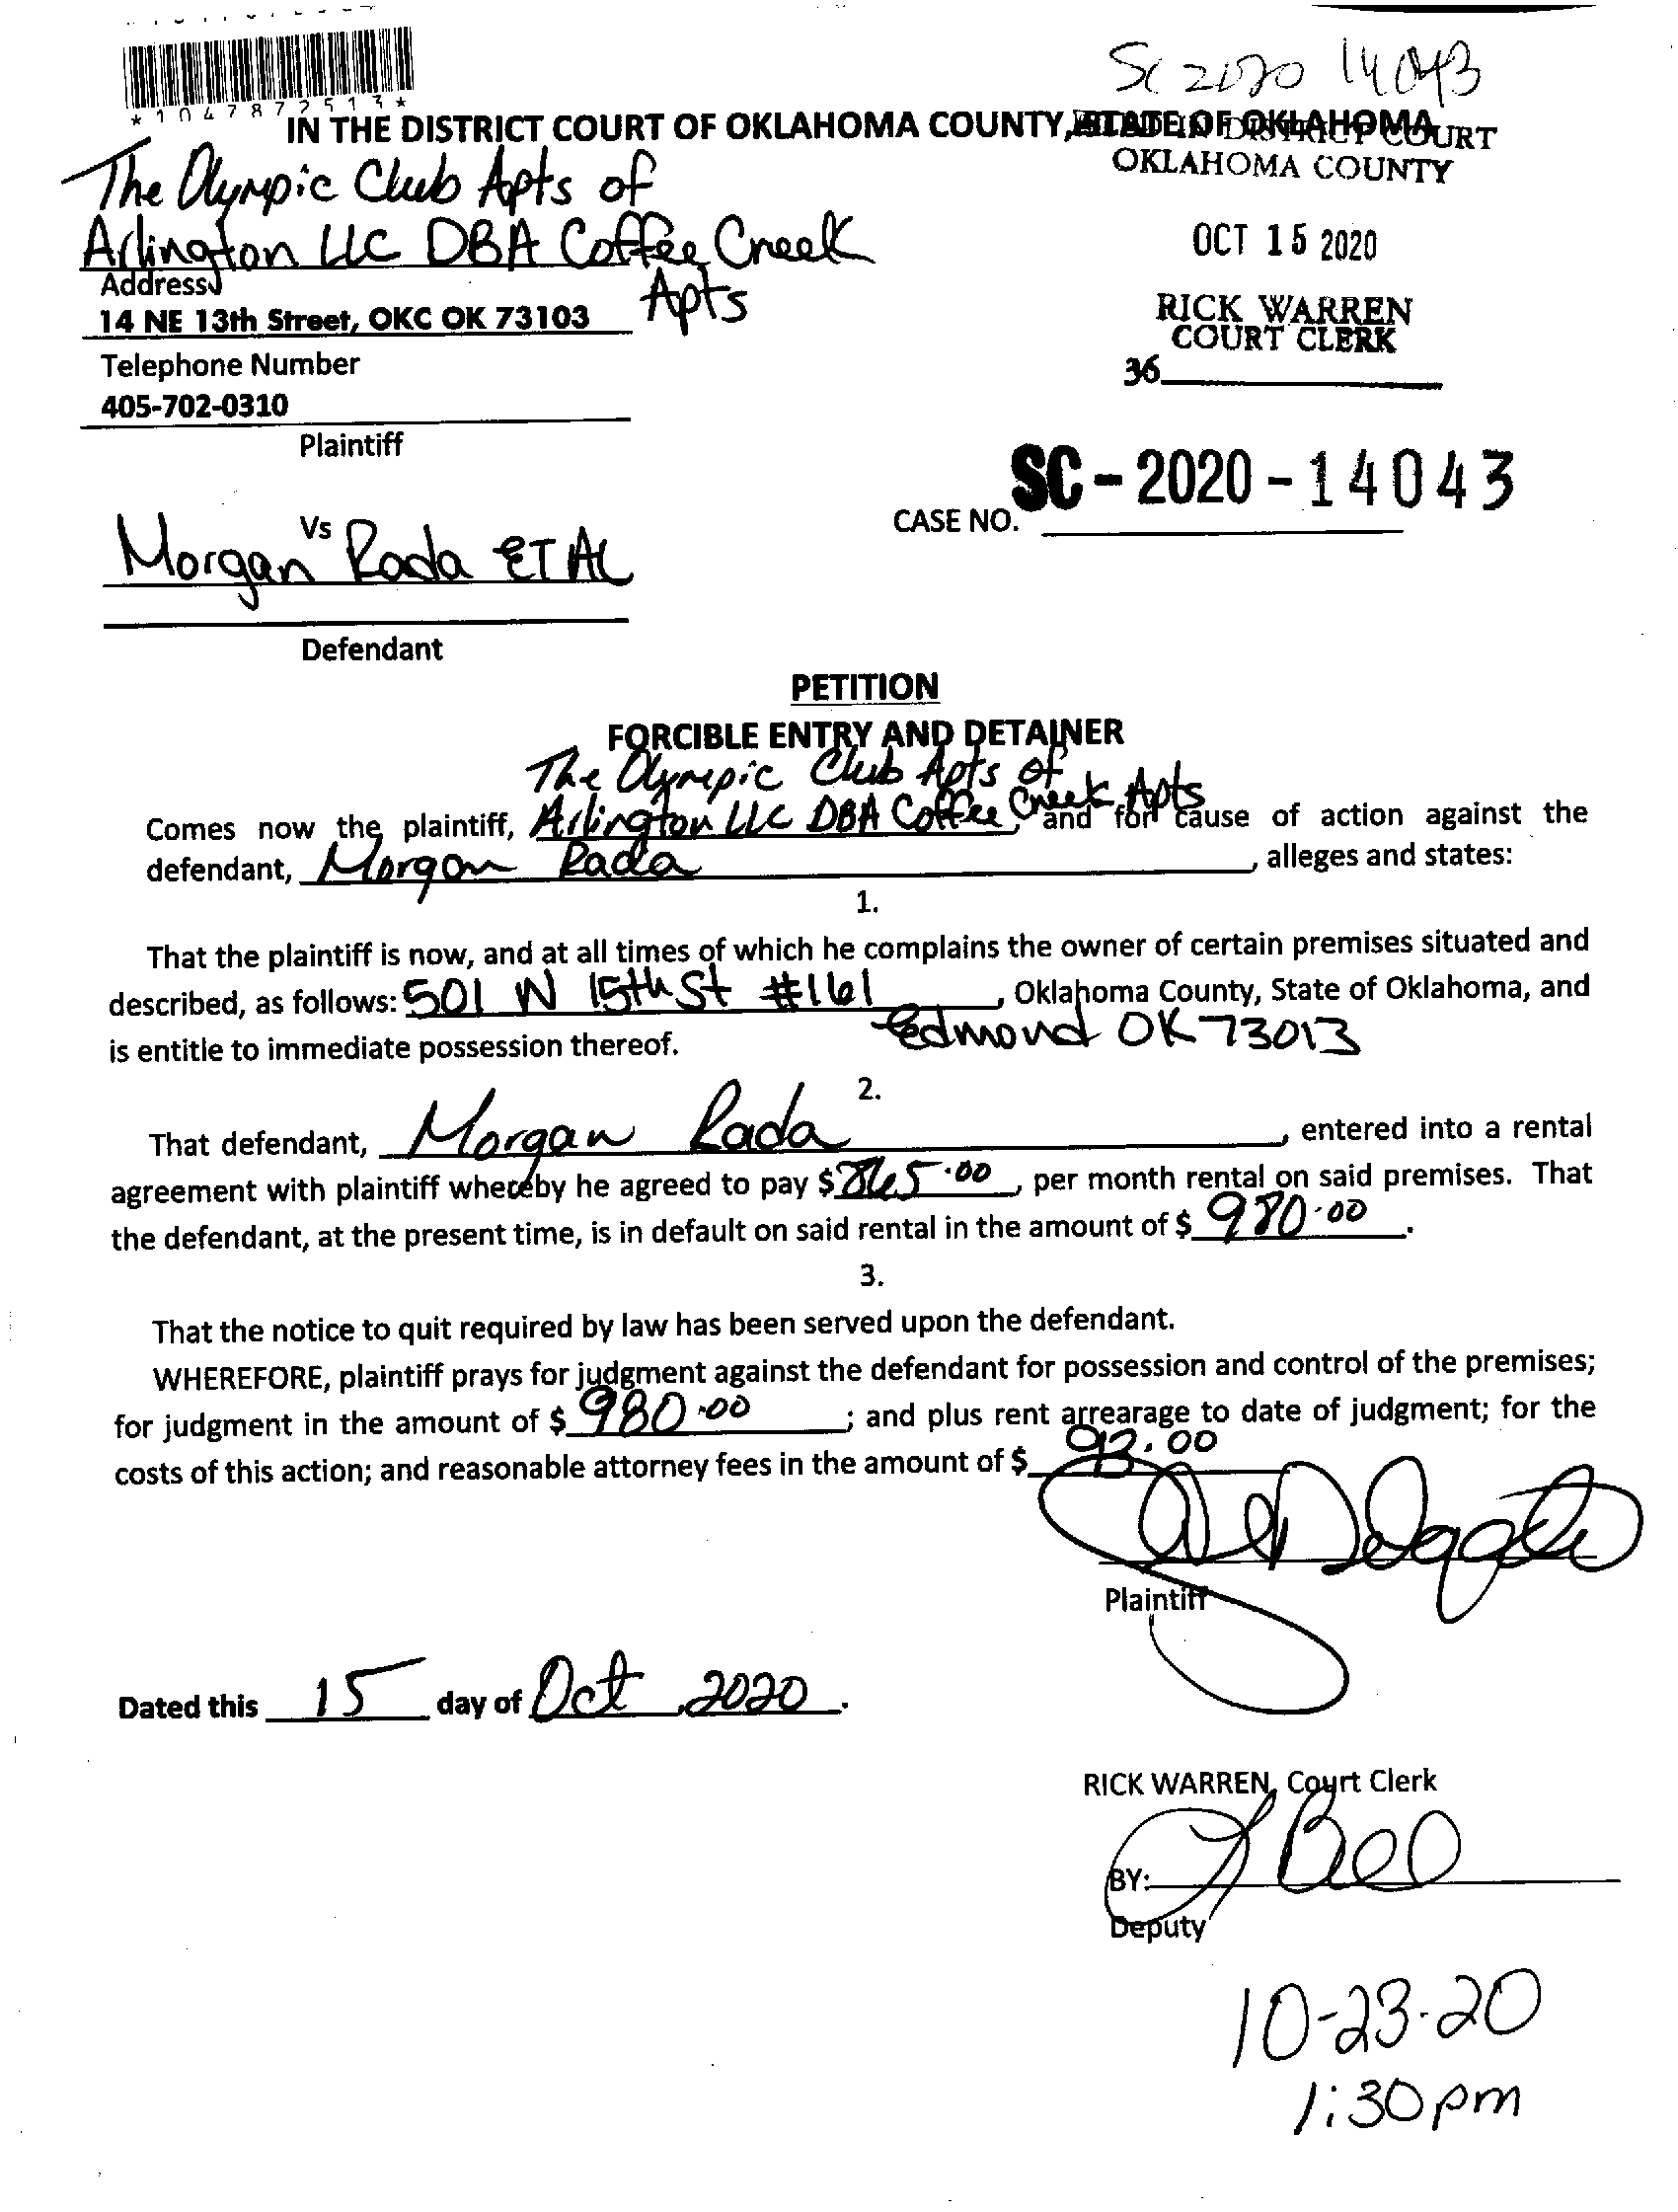 *1047872513*
SC 2020 14043
IN THE DISTRICT COURT OF OKLAHOMA COUNTY, STATE OF OKLAHOMA
FILED IN DISTRICT COURT
OKLAHOMA COUNTY
The Olympic Club Apts of
Arlington LLC DBA Coffee Creek
Apts
OCT 15 2020
Address
14 NE 13th Street, OKC OK 73103
RICK WARREN
COURT CLERK
Telephone Number
36
405-702-0310
Plaintiff
SC-2020-14043
CASE NO.
Vs
Morgan Rada ET AL
Defendant
PETITION
FORCIBLE ENTRY AND DETAINER
The Olympic Club Apts of
Comes now the plaintiff, Arlington LLC DBA Coffee Creek Apts, and for cause of action against the
defendant, Morgan Rada, alleges and states:
1.
That the plaintiff is now, and at all times of which he complains the owner of certain premises situated and
described, as follows: 501 W 15th St #161, Oklahoma County, State of Oklahoma, and
Edmond OK 73013
is entitle to immediate possession thereof.
2.
That defendant, Morgan Rada, entered into a rental
agreement with plaintiff whereby he agreed to pay $865.00, per month rental on said premises. That
the defendant, at the present time, is in default on said rental in the amount of $980.00.
3.
That the notice to quit required by law has been served upon the defendant.
WHEREFORE, plaintiff prays for judgment against the defendant for possession and control of the premises;
for judgment in the amount of $980.00; and plus rent arrearage to date of judgment; for the
costs of this action; and reasonable attorney fees in the amount of $93.00
Delgado
Plaintiff
Dated this 15 day of Oct, 2020.
RICK WARREN, Court Clerk
BY:
Deputy
10-23-20
1:30pm